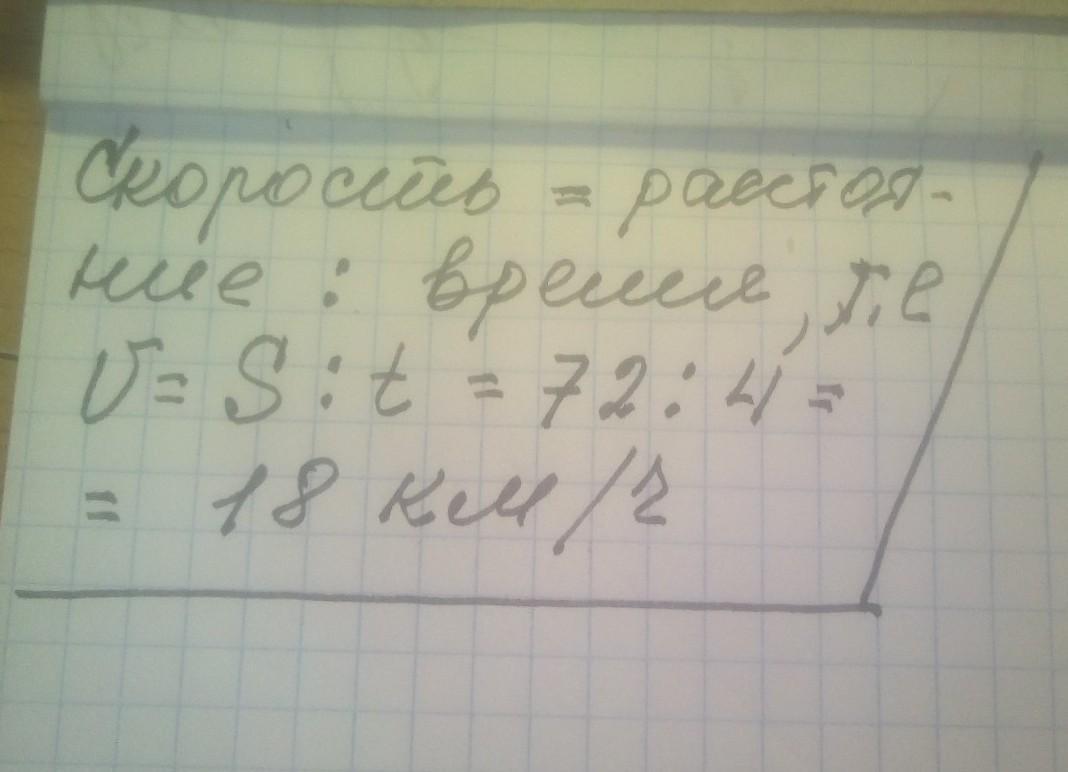 Скорость = расстоя-
ние : время, т.е
V = S : t = 72 : 4 =
= 18 км/ч